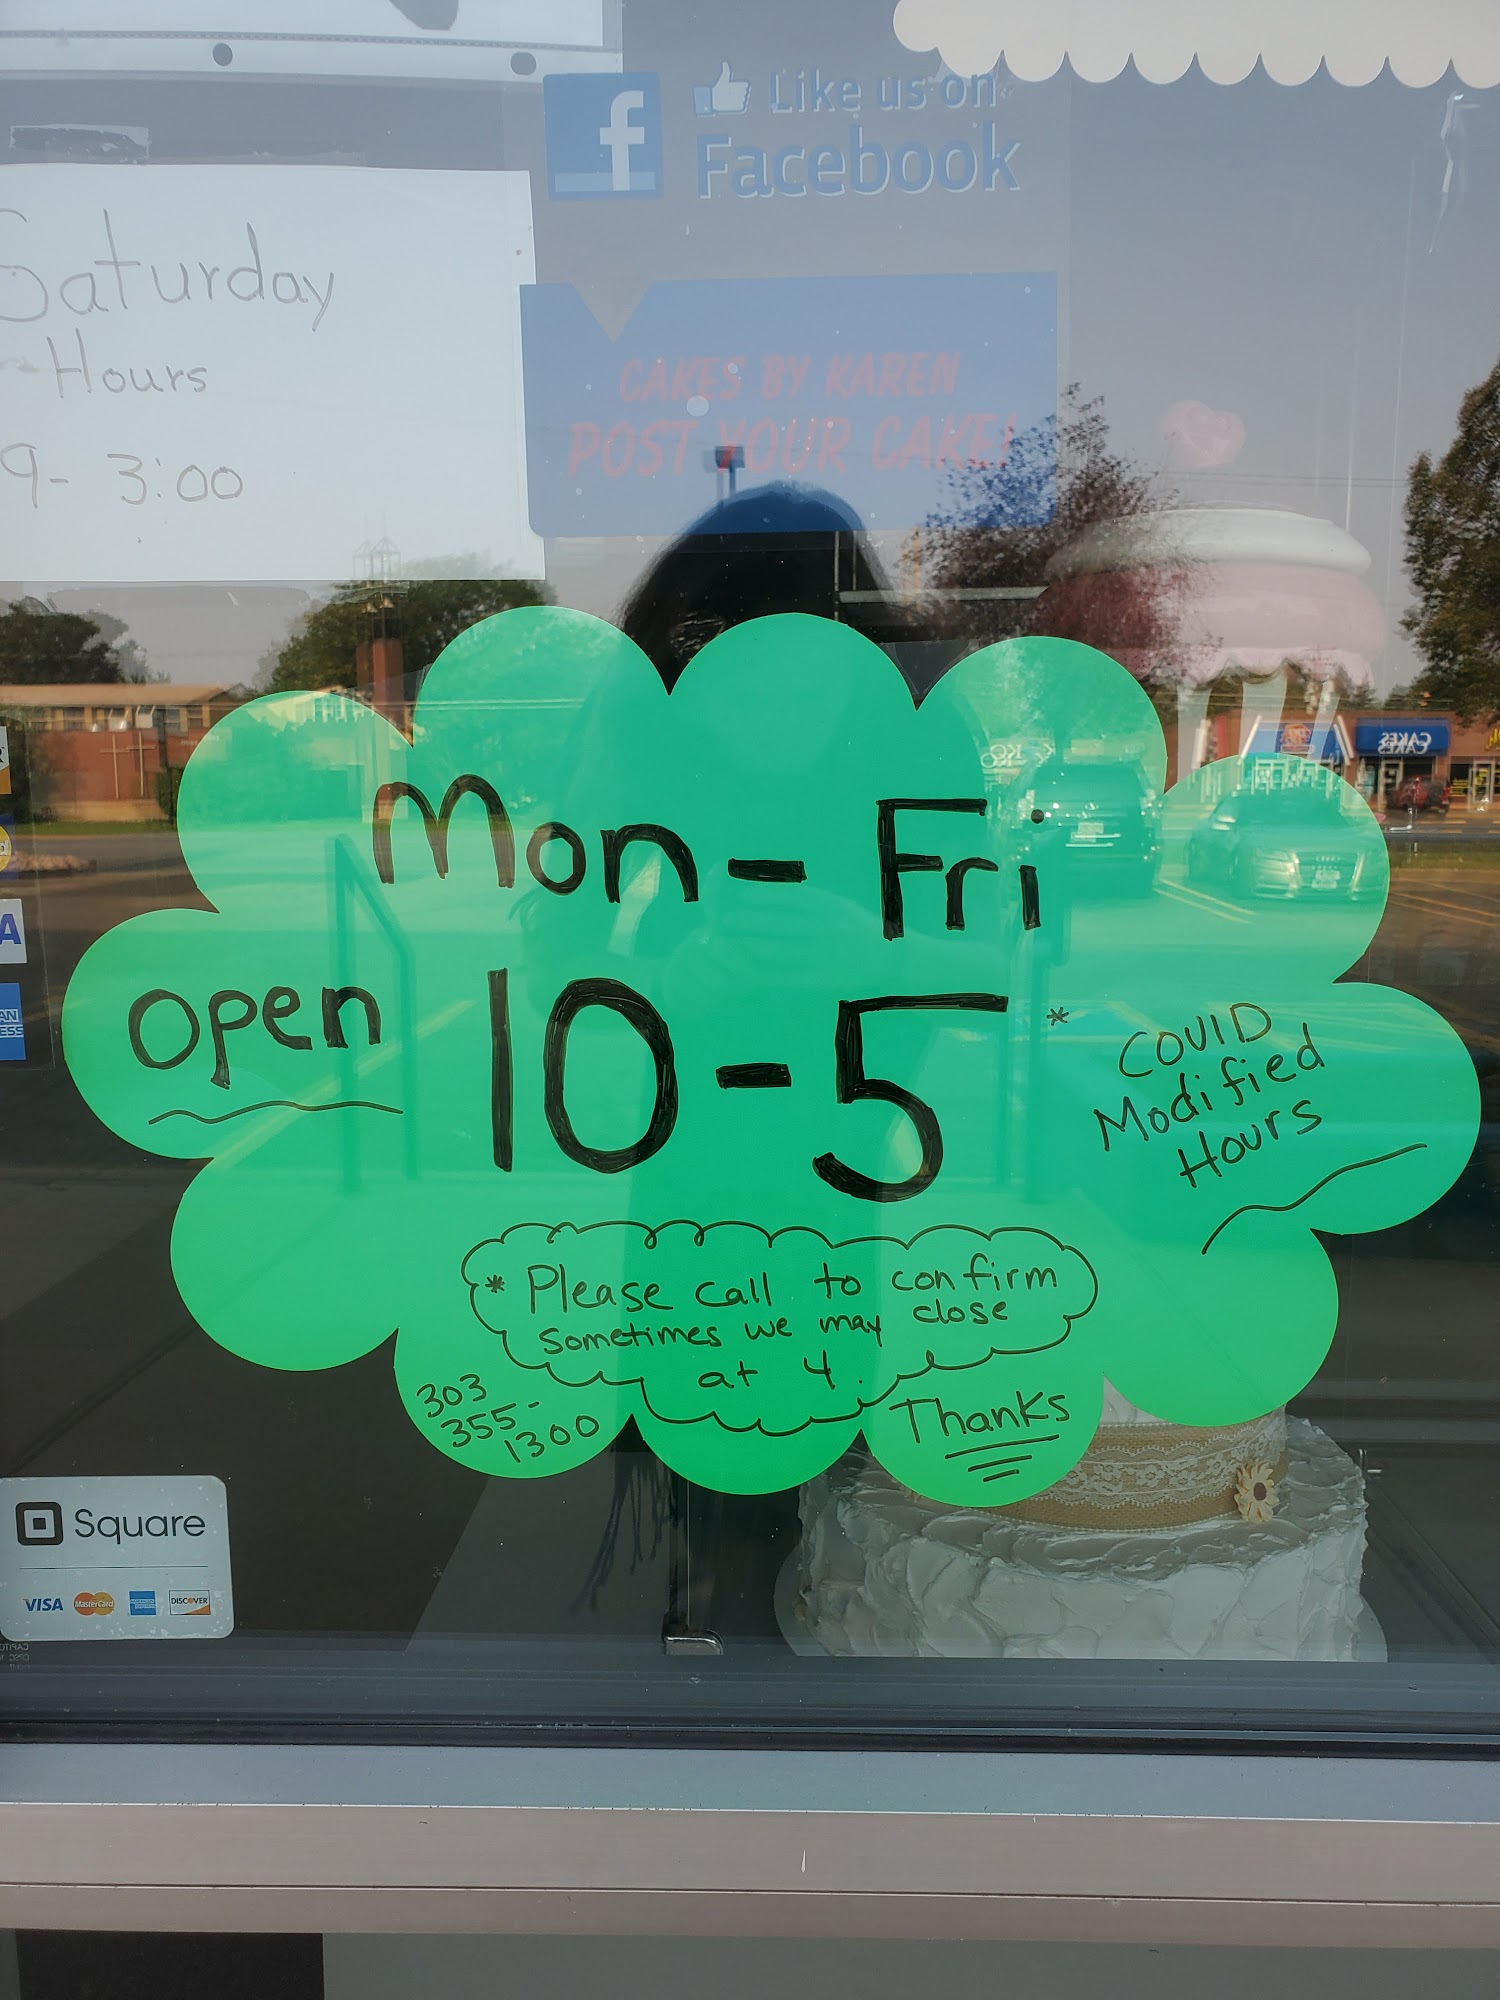 Like us on
Facebook
Saturday
Hours
9- 3:00
CAKES BY KAREN
POST YOUR CAKE!
Mon - Fri
open
10-5*
COVID
Modified
Hours
* Please call to confirm
sometimes we may close
at 4.
303
355-
1300
Thanks
Square
VISA
MasterCard
DISCOVER
CAKES